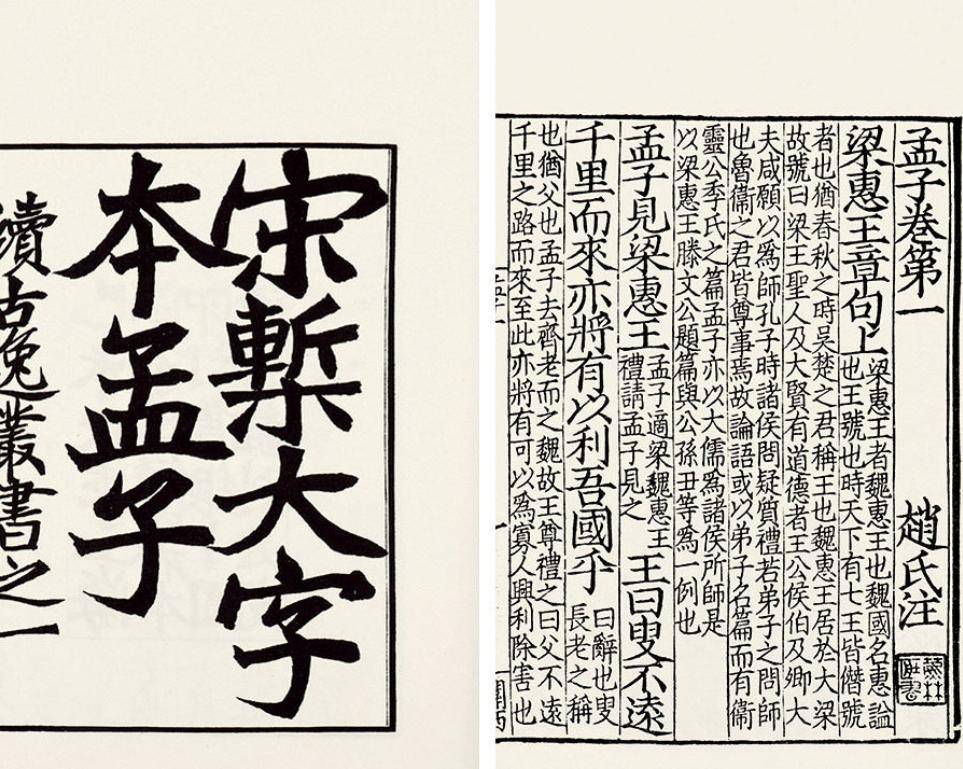 宋槧大字
本孟子
續古逸叢書之一
孟子卷第一 趙氏注
梁惠王章句上
梁惠王者魏惠王也魏國名惠謚
也王號也時天下有七王皆僭號
者也猶春秋之時吳楚之君稱王也魏惠王居於大梁
故號曰梁王聖人及大賢有道德者王公侯伯及卿大
夫咸願以爲師孔子時諸侯問疑質禮若弟子之問師
也魯衞之君皆尊事焉故論語或以弟子名篇而有衞
靈公季氏之篇孟子亦以大儒爲諸侯所師是
以梁惠王滕文公題篇與公孫丑等爲一例也
孟子見梁惠王
孟子適梁魏惠王
禮請孟子見之
王曰叟不遠
千里而來亦將有以利吾國乎
曰辭也叟
長老之稱
也猶父也孟子去齊老而之魏故王尊禮之曰父不遠
千里之路而來至此亦將有可以爲寡人興利除害也